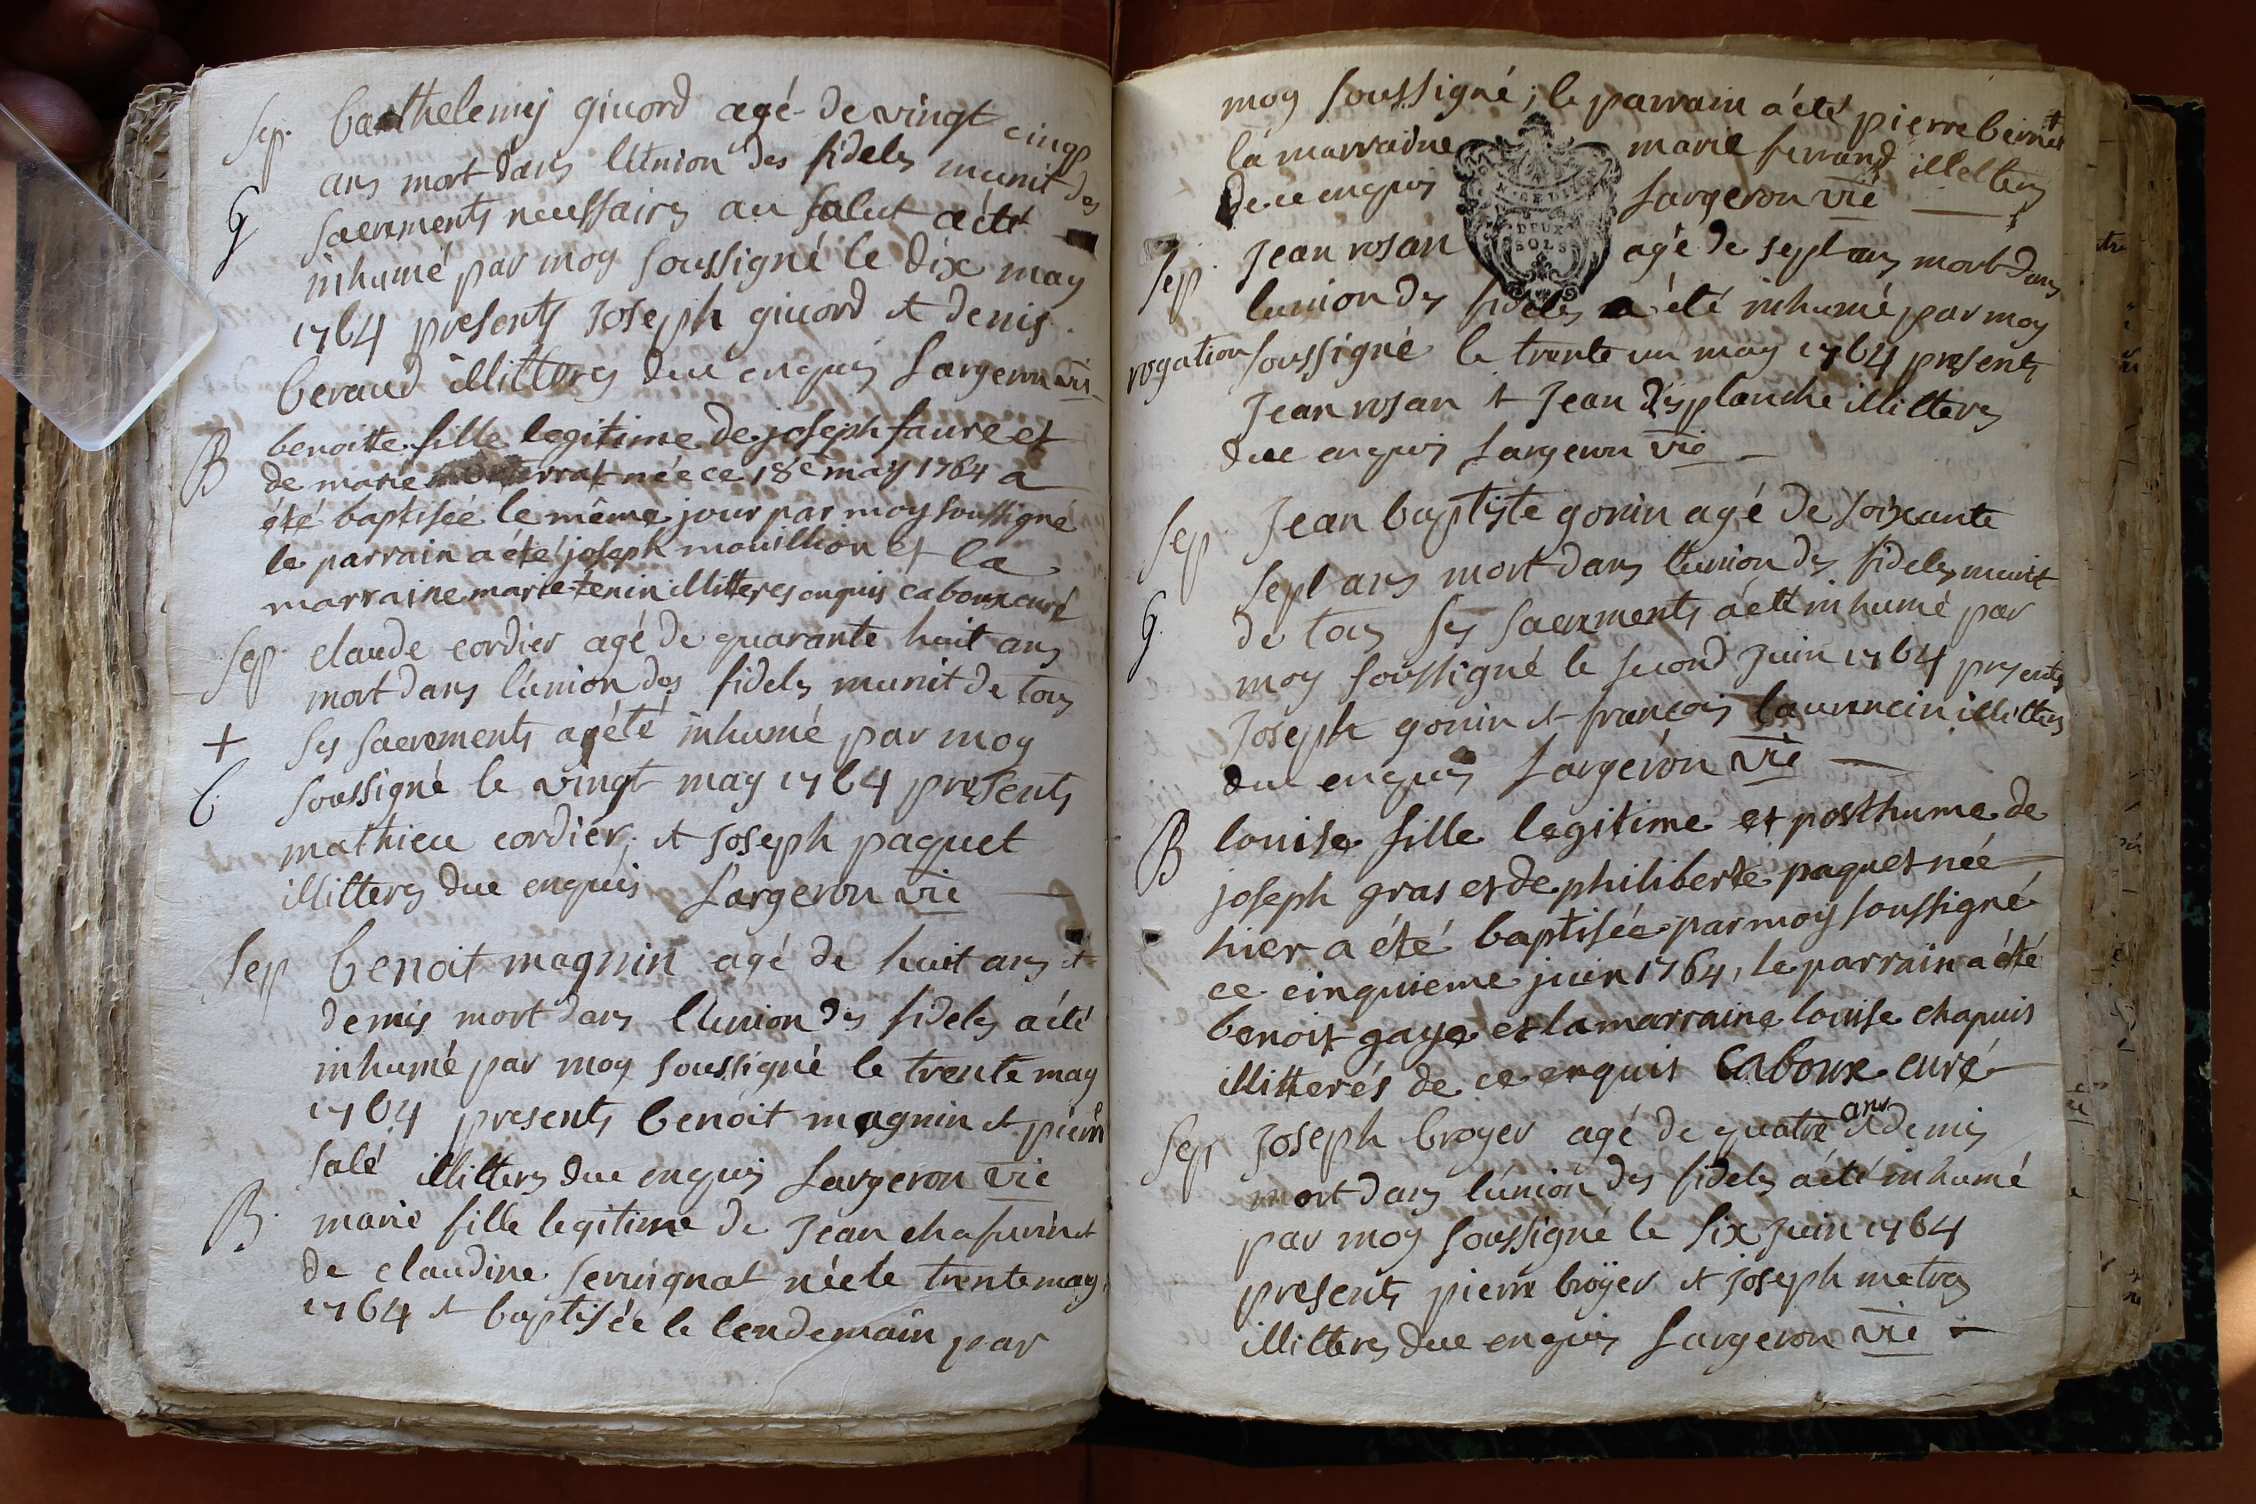 Sep. barthelemy givord agé de vingt cinq
ans mort dans l'union des fideles munit des
G sacrements necessaires au salut a été
inhumé par moy soussigné le dix may
1764 presents Joseph givord et denis
beraud illitteres de ce enquis Largeron vic
B benoitte fille legitime de joseph faure et
de marie née ce 18e may 1764 a
été baptisée le même jour par moy soussigné
le parrain a été joseph mouillion et la
marraine marie tenin illitteres enquis caboux curé
Sep. claude cordier agé de quarante huit ans
mort dans l'union des fideles munit de tous
+ ses sacrements a été inhumé par moy
C. soussigné le vingt may 1764 presents
mathieu cordier, et Joseph paquet
illitteres de ce enquis Largeron vic
Sep benoit magnin agé de huit ans et
demis mort dans l'union des fideles a été
inhumé par moy soussigné le trente may
1764 presents benoit magnin et pierre
salé illitteres de ce enquis Largeron vic
B. marie fille legitime de Jean chafurin et
de claudine servignat née le trente may
1764 et baptisée le lendemain par
moy soussigné; le parrain a été pierre bernier
la marraine marie ferrand illitteres
de ce enquis Largeron vic
DEUX
SOLS
Sep. Jean rosan agé de sept ans mort dans
l'union des fideles a été inhumé par moy
rogation soussigné le trente un may 1764 presents
Jean rosan et Jean desplanche illitteres
de ce enquis Largeron vic
Sep. Jean baptiste gonin agé de soixante
sept ans mort dans l'union des fideles munit
G. de tous ses sacrements a été inhumé par
moy soussigné le second Juin 1764 presents
Joseph gonin et françois laurencin illitteres
de ce enquis Largeron vic
B louise fille legitime et posthume de
joseph gras et de philiberte paquet née
hier a été baptisée par moy soussigné
ce cinquieme juin 1764, le parrain a été
benoit gaye et la marraine louise chapuis
illitterés de ce enquis caboux curé
Sep Joseph broyer agé de quatre ans et demis
mort dans l'union des fideles a été inhumé
par moy soussigné le six Juin 1764
presents pierre broÿer et Joseph metras
illitteres de ce enquis Largeron vic